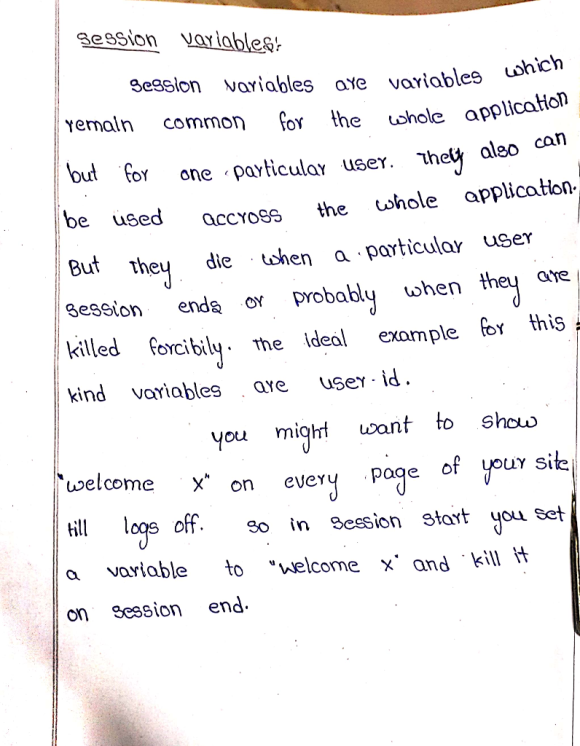 Session variables:-
Session variables are variables which
remain common for the whole application
but for one particular user. They also can
be used accross the whole application.
But they die when a particular user
session ends or probably when they are
killed forcibily. The ideal example for this
kind variables are user-id.
you might want to show
"welcome x" on every page of your site
till logs off. so in session start you set
a variable to "welcome x" and kill it
on session end.